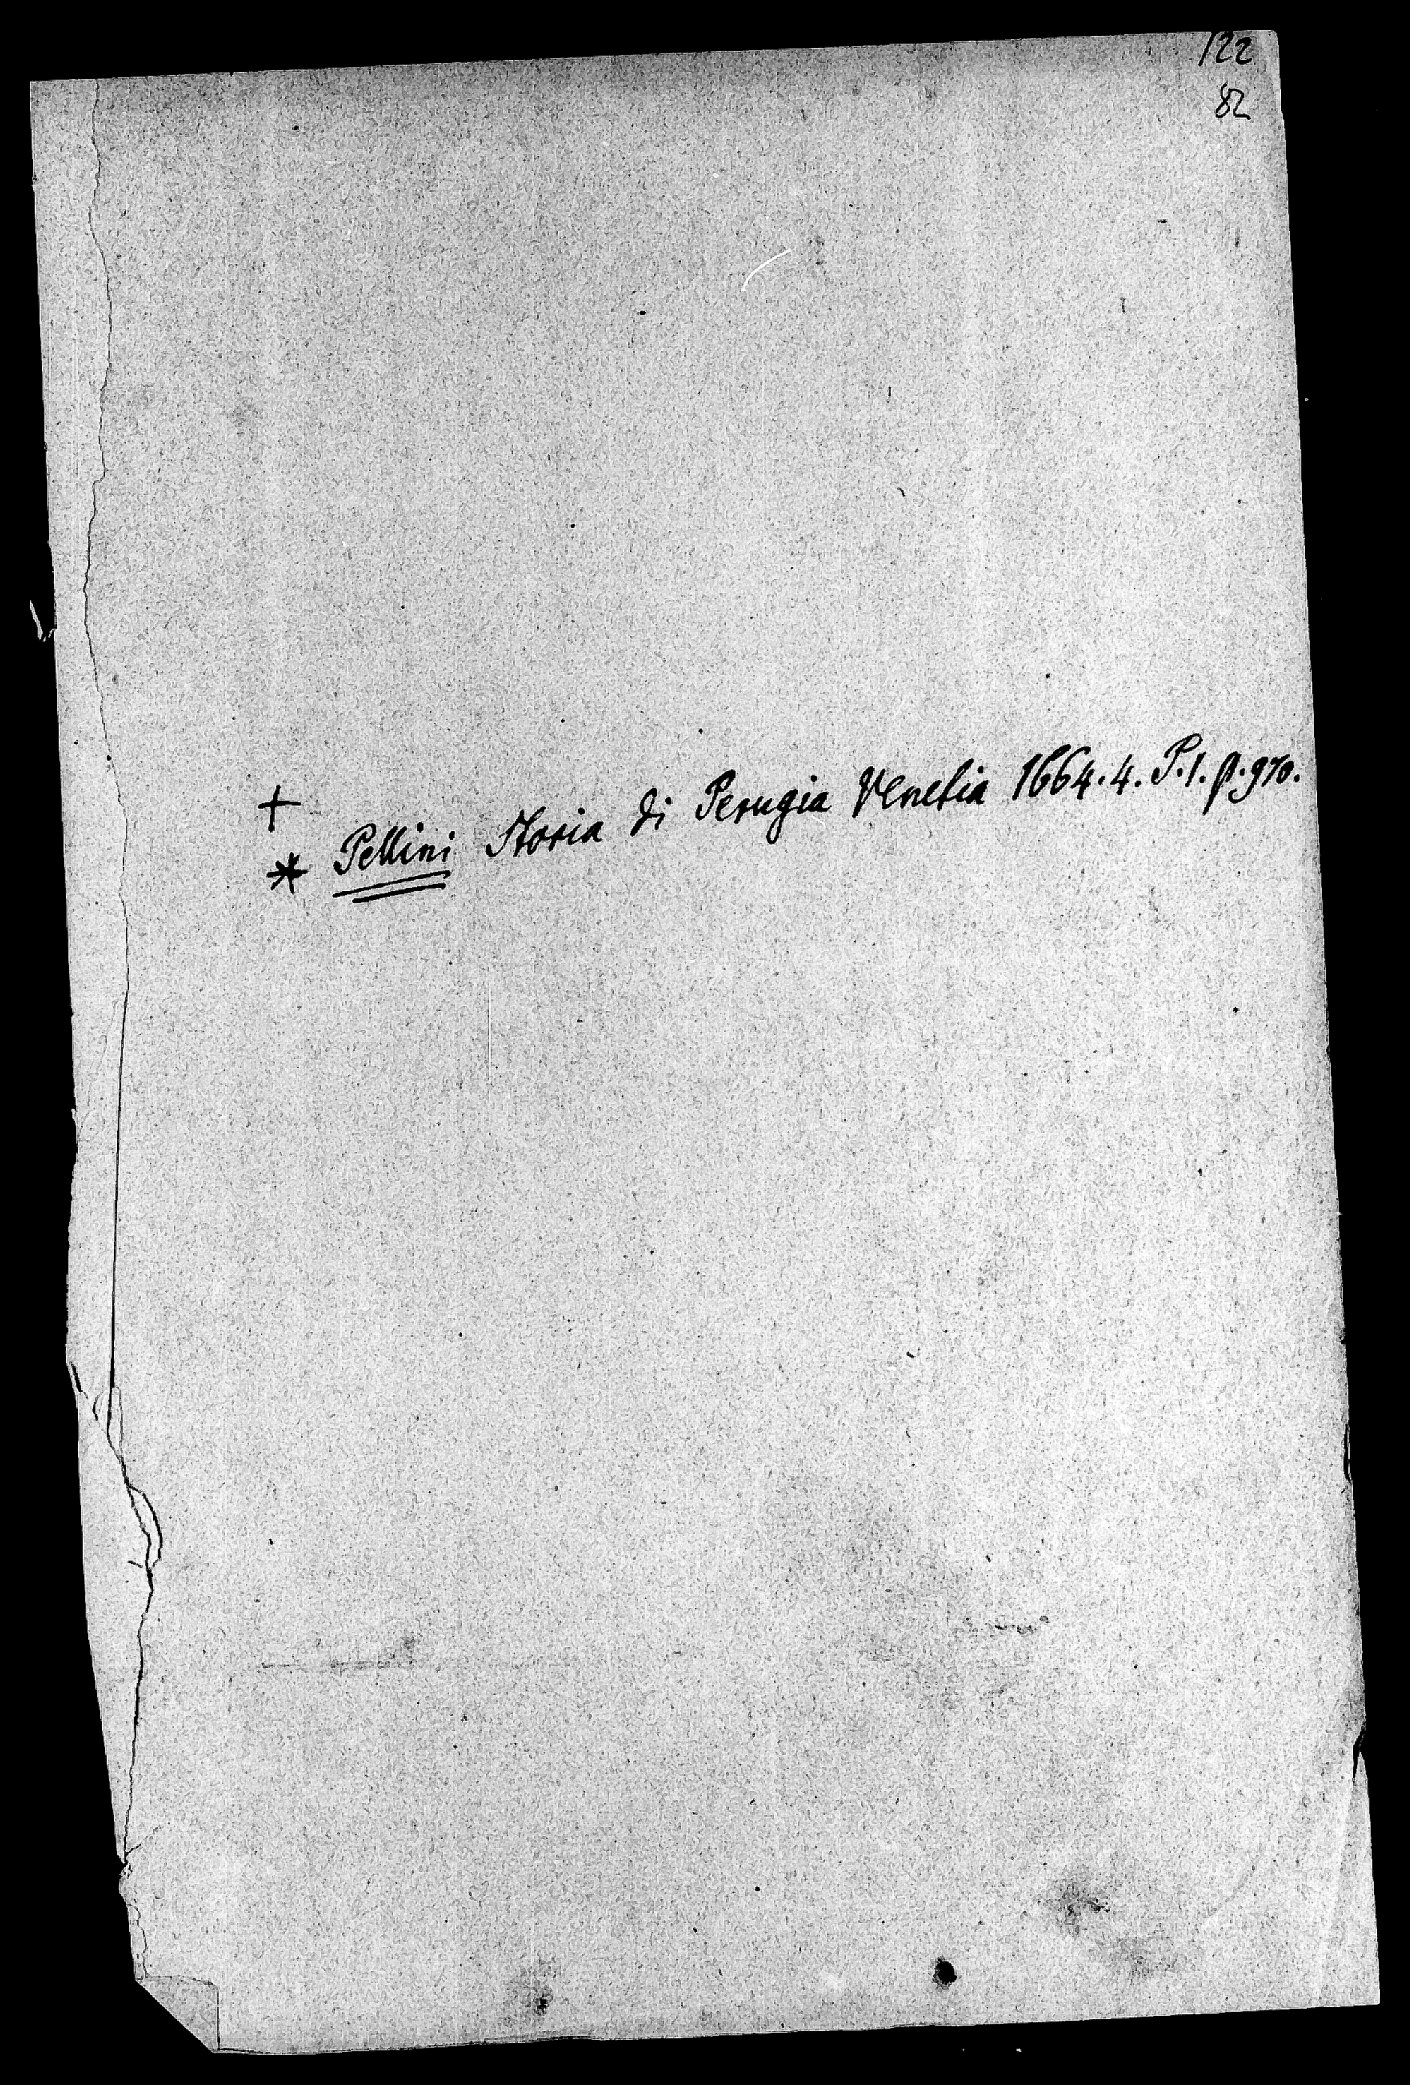 122
82
+
* Pellini Storia di Perugia Venetia 1664. 4. P. 1. p. 970.